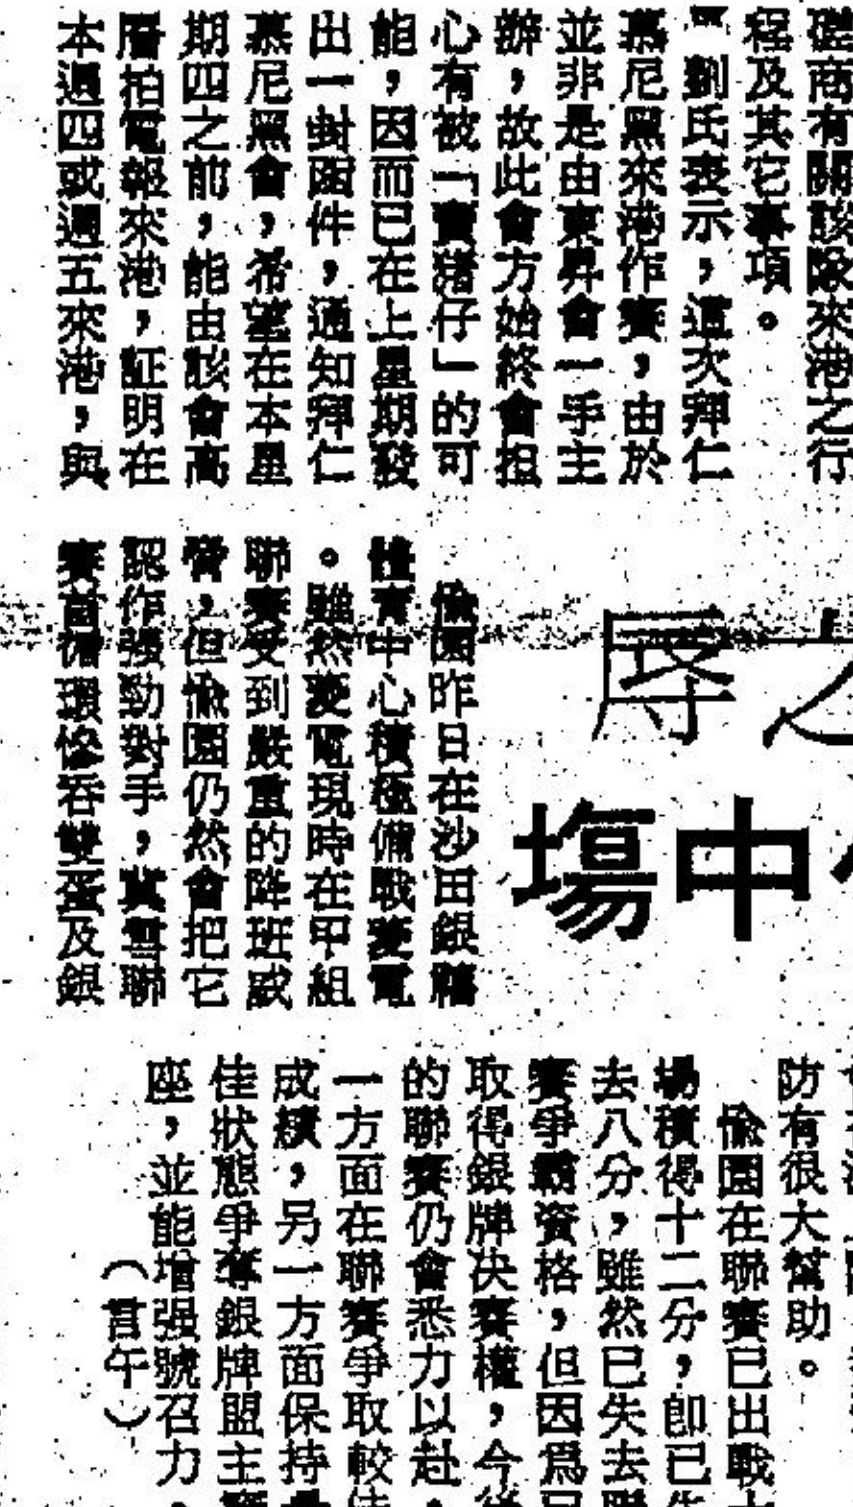 磋商有關該隊來港之行
程及其它事項。
劉氏表示,這次拜仁
慕尼黑來港作賽,由於
並非是由東昇會一手主
辦,故此會方始終會担
心有被「賣猪仔」的可
能,因而已在上星期發
出一封函件,通知拜仁
慕尼黑會,希望在本星
期四之前,能由該會高
層拍電報來港,証明在
本週四或週五來港,與
之辱
中塲
愉園昨日在沙田銀禧
體育中心積極備戰菱電
。雖然菱電現時在甲組
聯賽受到嚴重的降班威
脅,但愉園仍然會把它
認作强勁對手,冀雪聯
賽首循環慘吞雙蛋及銀
防有很大幫助。
愉園在聯賽已出戰
場積得十二分,即已失
去八分,雖然已失去聯
賽爭霸資格,但因爲已
取得銀牌決賽權,今後
的聯賽仍會悉力以赴,
一方面在聯賽爭取較佳
成績,另一方面保持最
佳狀態爭奪銀牌盟主寶
座,並能增强號召力。
(言午)